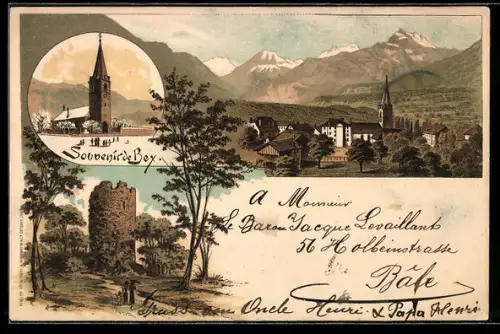 Souvenir de Bex.
A Monsieur
Le Baron Jacque Levaillant
56 Holbeinstrasse
Bâle
Gruss von Oncle Henri & Papa Henri